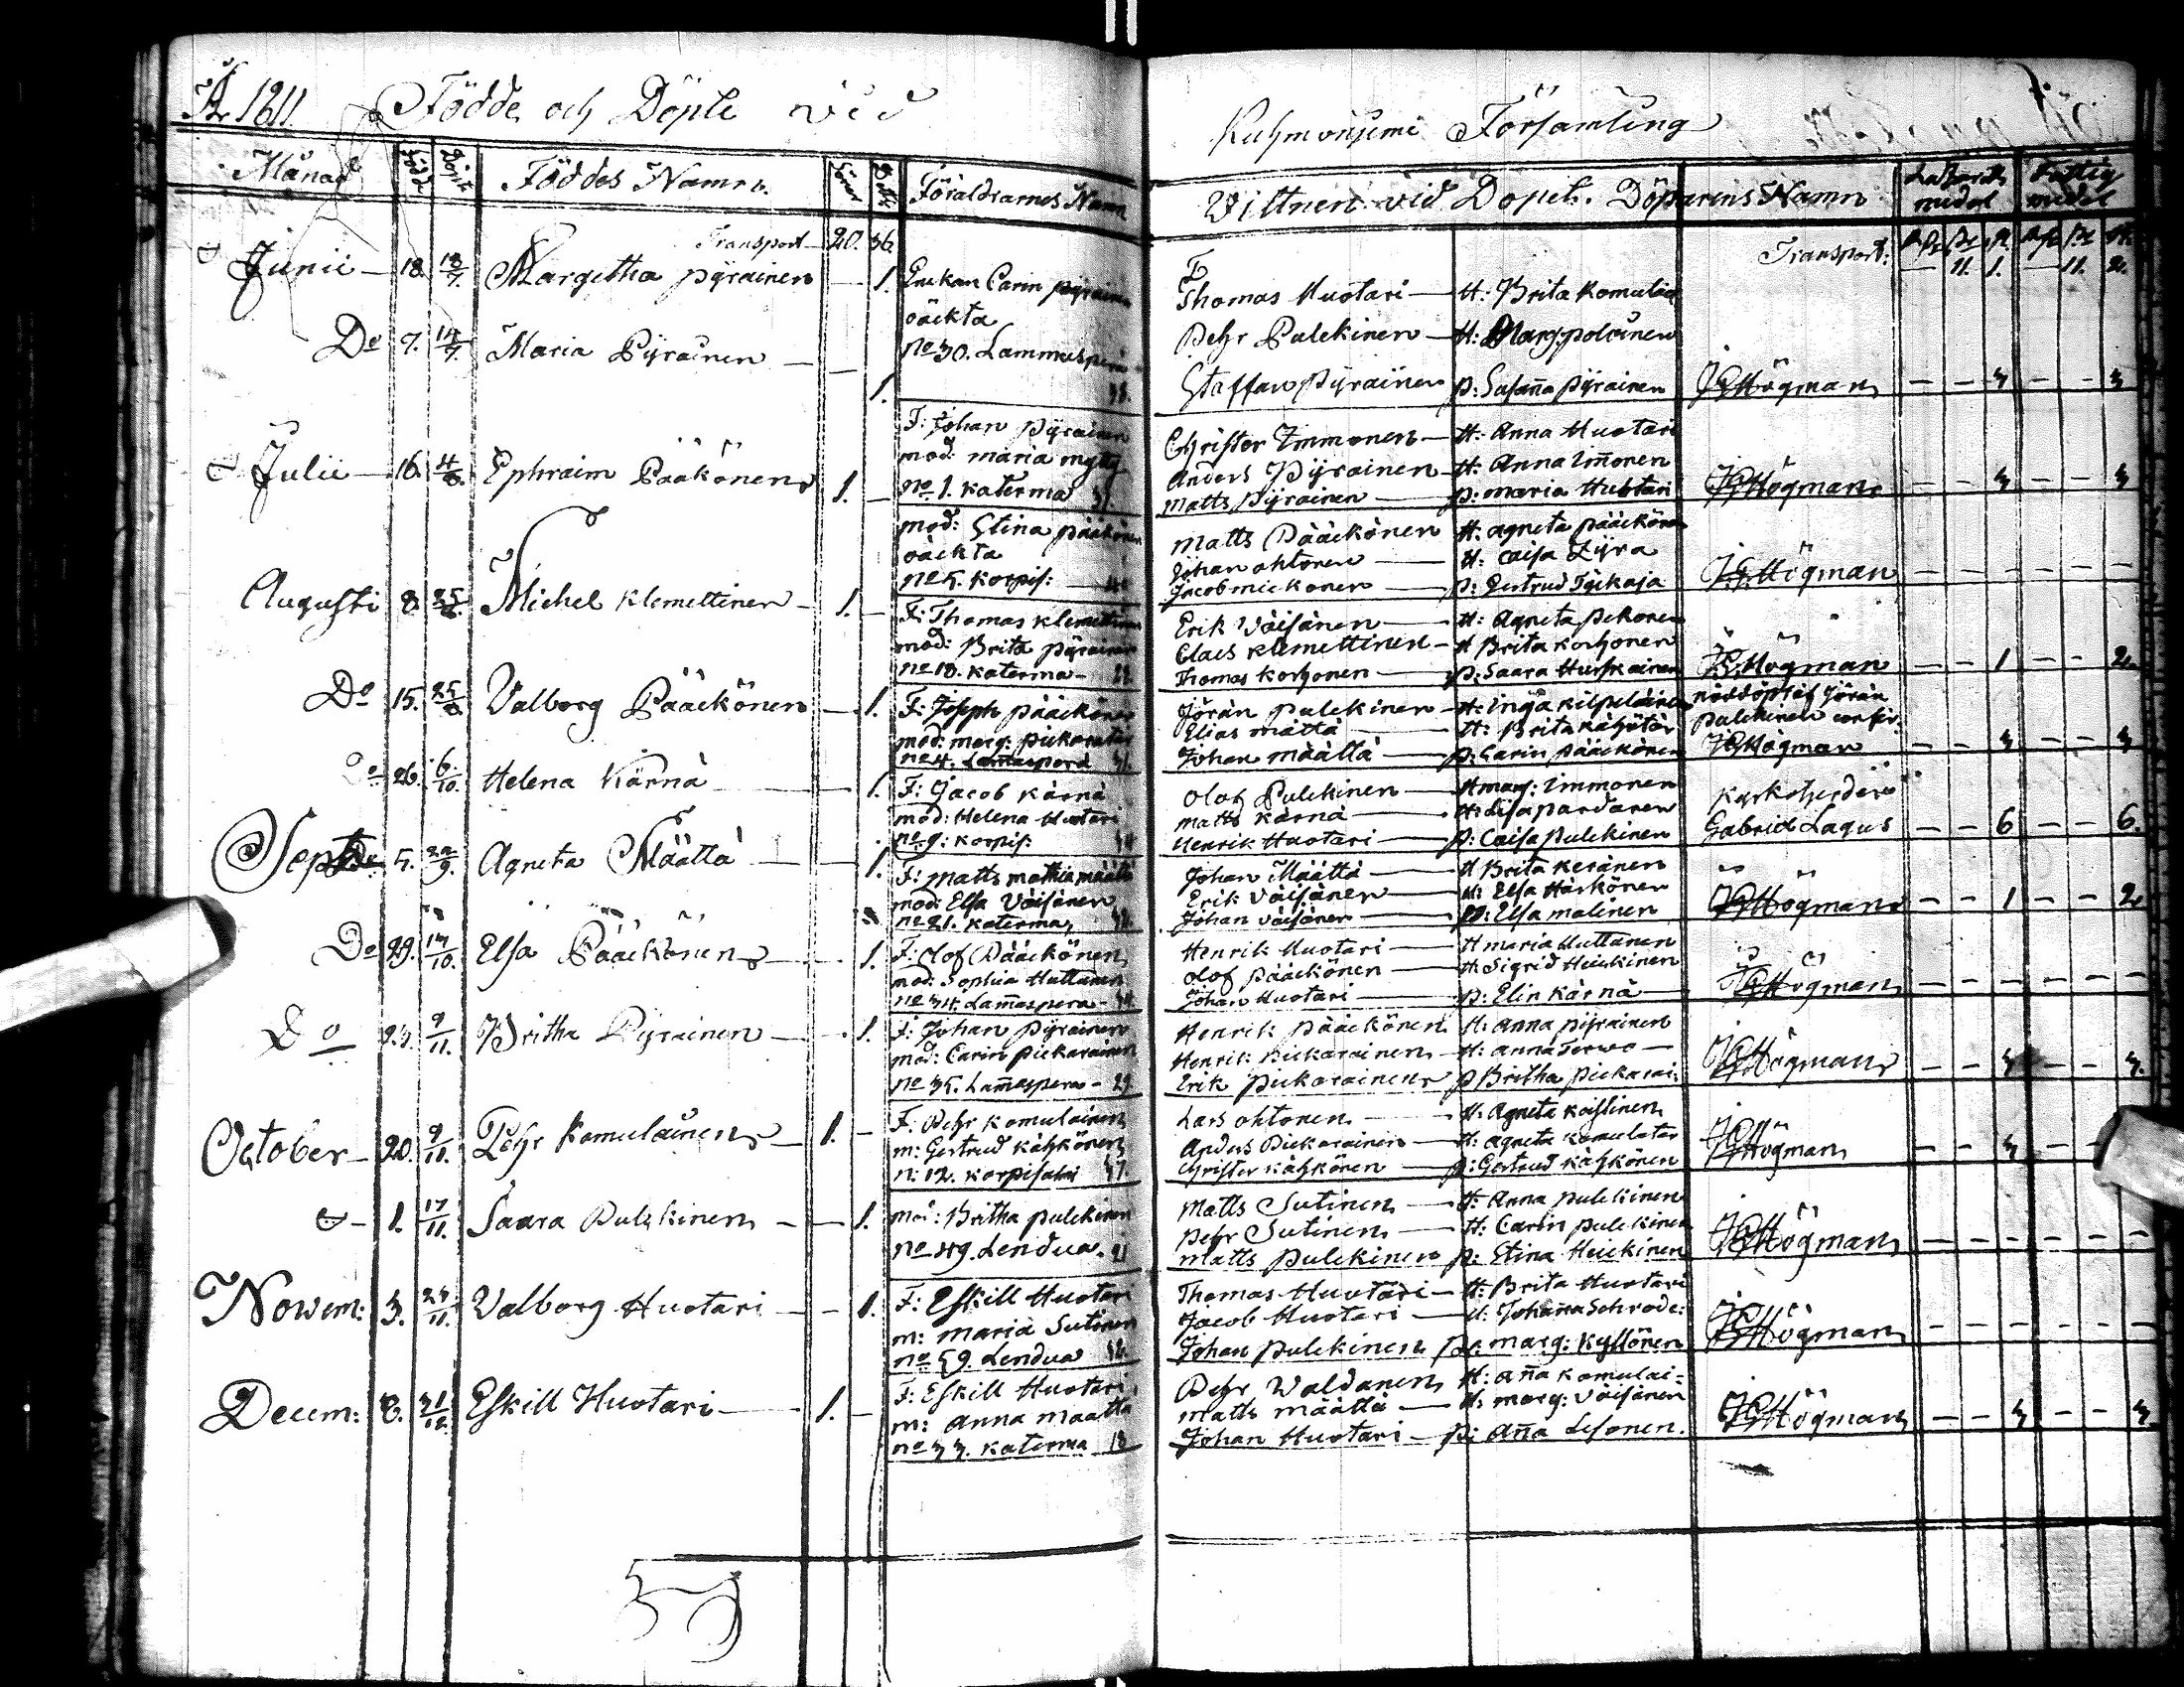 År 1811. Födde och Döpte vid
Kuhmoniemi Församling
Månad Född Döpt Föddes Namn. Söner Döttr Föräldrarnes Namn
Vittnen vid Dopet. Döparens Namn Lazareth medel Fattig medel
Transport 20. 36.
Transport: — 11. 1. — 11. 2.
Junii — 18. 18/7. Margetha Pyrainen — 1. Enkan Carin Pyrainen
oäckta
Do 7. 14/7. Maria Pyrainen — 1.
No 30. Lammaspera 38.
Thomas Huotari — H: Brita Komulai
Pehr Pulckinen — H: Marg: Polvinen
Staffan Pyrainen P: Susanna Pyrainen J Högman — — 3 — — 3
Julii — 16. 4/8. Ephraim Pääkönen 1. —
F: Johan Pyrainen
mod: Maria Mytty
No 1. Katerma 37.
Christer Immonen — H: Anna Huotari
Anders Pyrainen — H: Anna Immonen
Matts Pyrainen — P: Maria Huotari J Högman — — 3 — — 3
mod: Stina Pääkönen
oäckta
No 5. Korpis: 40
Matts Pääckönen H: Agneta Pääckönen
Johan Ohtonen — H: Caisa Zyra
Jacob Mickonen — P: Gertrud Tyckäja J Högman — — — — — —
Augusti 8. 25/8. Michel Klemettinen — 1. —
F: Thomas Klemettinen
mod: Brita Pyrainen
No 18. Katerma — 22.
Erik Väisänen — H: Agneta Pekonen
Claes Klemettinen — H Brita Korhonen
Thomas Korhonen — P: Saara Hurskainen J Högman — — 1 — — 2.
Do 15. 25/8. Valborg Pääckönen — 1.
F: Joseph Pääckönen
mod: Marg: Pickaratar
No 4. Lamaspera 31.
Jöran Pulckinen — H: Inga Kilpeläinen nöddöpt af Jöran
Elias Määttä — H: Brita Kähötär Pulckinen confir.
Johan Määttä — P: Carin Pääckönen J Högman — — 3 — — 3
Do 26. 6./10. Helena Kärnä — 1.
F: Jacob Kärnä
mod: Helena Huotari
No 9: Korpis: 34
Olof Pulckinen — H Marg: Immonen Kyrkoherden
Matts Kärnä — H: Lisa Pardanen
Henrik Huotari — P: Caisa Pulckinen Gabriel Lagus — — 6 — — 6.
Sept 5. 22/9. Agneta Määttä — 1.
F: Matts Mathia Määttä
mod: Elsa Väisänen
No 21. Katerma 32.
Johan Määttä — H Brita Keränen
Erik Väisänen — H: Elsa Härkönen
Johan Väisänen — P: Elsa Malinen J Högman — — 1 — — 2.
Do 29. 13/10. Elsa Pääckönen — 1.
F: Olof Pääckönen
mod: Sophia Huttunen
No 34. Lamaspera — 34.
Henrik Huotari — H Maria Huttunen
Olof Pääckönen — H: Sigrid Heickinen
Johan Huotari — P: Elin Kärnä J Högman — — — — — —
Do 23. 9/11. Britha Pyrainen — 1.
F: Johan Pyrainen
mod: Carin Pickarainen
No 35. Lamaspera — 29.
Henrik Pääckönen H: Anna Pyrainen
Henrik Pickarainen — H: Anna Terwo
Erik Pickarainen P Britha Pickarai: J Högman — — 3 — — 3.
October — 20. 9/11. Pehr Komulainen — 1. —
F: Pehr Komulainen
m: Gertrud Kähkönen
n: 12. Korpisalmi 37.
Lars Ohtonen — H: Agneta Koistinen
Anders Pickarainen — H: Agneta Komulatar
Christer Kähkönen — P: Gertrud Kähkönen J Högman — — 3 — —
1. 17/11. Saara Pulckinen — 1.
mod: Britha Pulckinen
No 49. Lendua. 21
Matts Sutinen — H: Anna Pulckinen
Pehr Sutinen — H: Carin Pulckinen
Matts Pulckinen P: Stina Heickinen J Högman — — — — — —
Novem: 3. 24/11. Valborg Huotari — 1.
F: Eskill Huotari
m: Maria Sutinen
No 59. Lendua 32.
Thomas Huotari — H: Brita Huotari
Jacob Huotari — H: Johanna Schrode:
Johan Pulckinen P: Marg: Kyllönen J Högman — — — — — —
Decem: 8. 31/12. Eskill Huotari — 1. —
F: Eskill Huotari
m: Anna Määttä
No 33. Katerma 18
Pehr Waldanen H: Anna Komulai=
Matts Määttä — H: Marg: Väisänen
Johan Huotari — P: Anna Lesonen. J Högman — — 3 — — 3